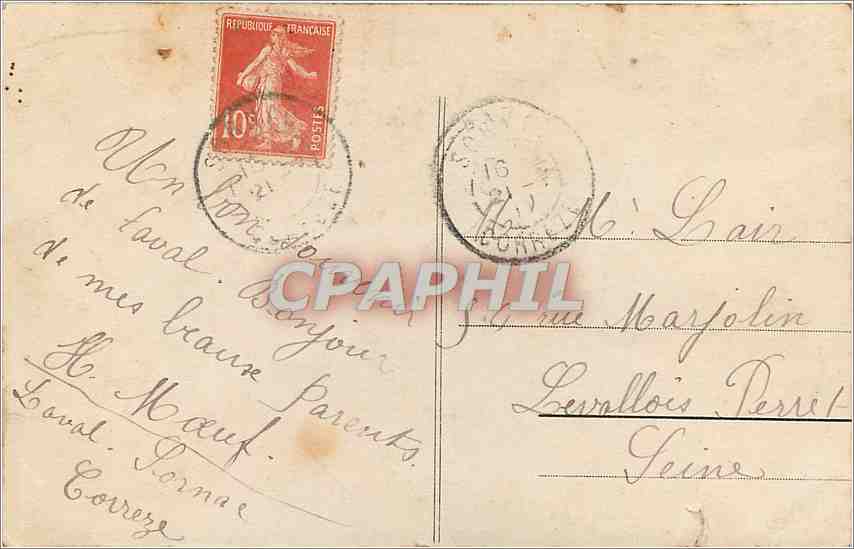 REPUBLIQUE FRANÇAISE
10c
POSTES
Un bon souvenir
de Laval. Bonjour
de mes beaux parents.
H. Mœuf.
Laval. Sornac
Corrèze
CPAPHIL
16
21
CORREZE
Mr Lair
rue Marjolin
Levallois Perret
Seine